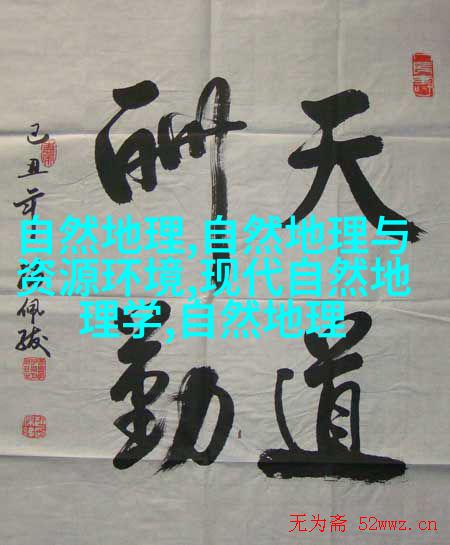 天道
酬勤
己丑年
佩
自然地理,自然地理与
资源环境,现代自然地
理学,自然地理
无为斋 52wwz.cn